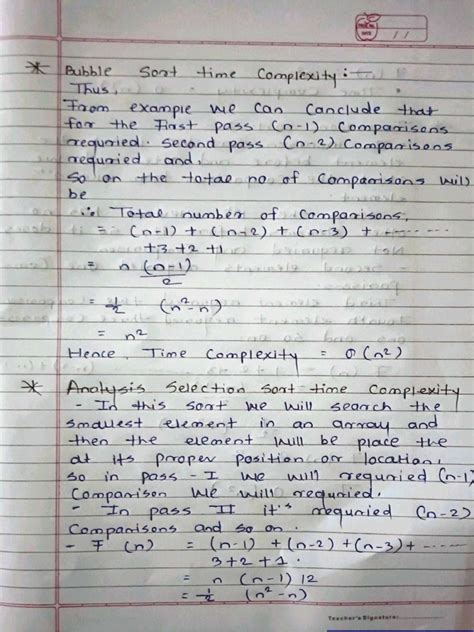 / /
* Bubble Sort time Complexity :
Thus,
From example we can Canclude that
for the First pass (n-1) Comparisons
requried. second pass (n-2) Comparisons
requried and,
So on the total no of Comparisons will
be
∴ Total number of Comparisons,
= (n-1) + (n-2) + (n-3) + ------
+3 +2 +1
= n (n-1)
2
= 1/2 (n²-n)
= n²
Hence, Time Complexity = O(n²)
* Analysis Selection Sort time Complexity
- In this sort we will search the
smallest element in an array and
then the element will be place the
at its proper position or location,
so in pass - I we will requried (n-1)
Comparison we will requried.
- In pass II it's requried (n-2)
Comparisons and so on.
- F (n) = (n-1) + (n-2) + (n-3) + ------
3+2+1.
= n (n-1) 12
= 1/2 (n²-n)
Teacher's Signature: